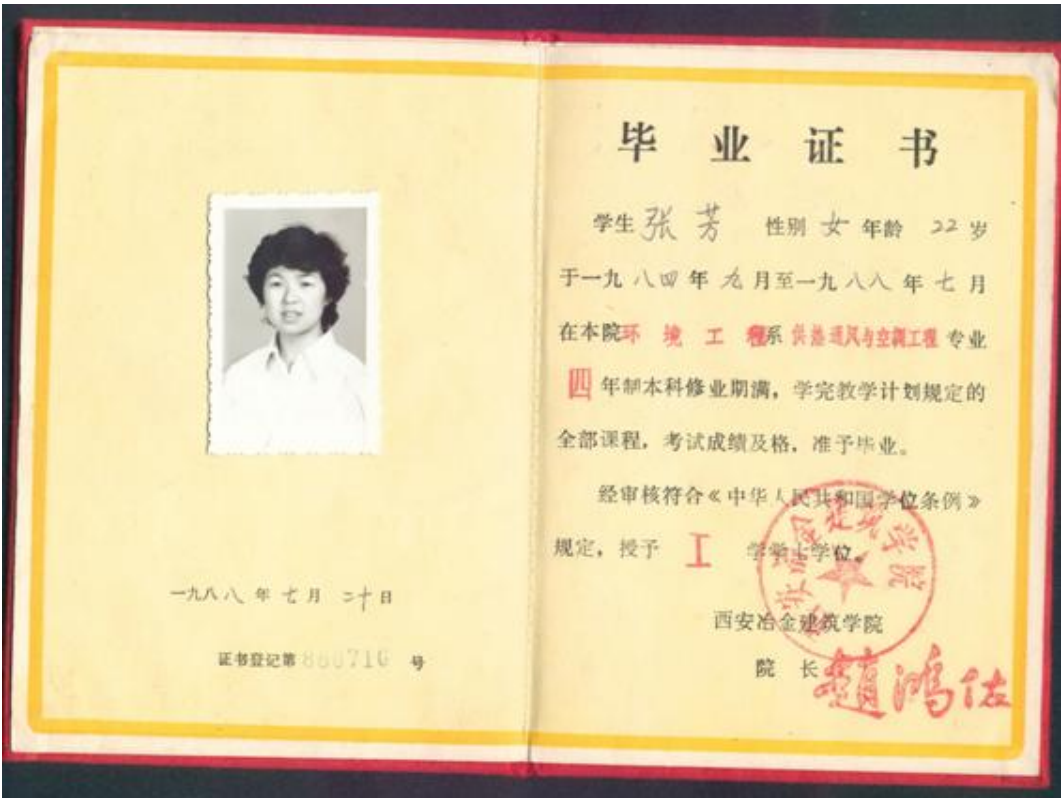 一九八八年七月二十日
证书登记第 号
毕业证书
学生张芳 性别女年龄22岁
于一九八四年九月至一九八八年七月
在本院环境工程系供热通风与空调工程专业
四年制本科修业期满，学完教学计划规定的
全部课程，考试成绩及格，准予毕业。
经审核符合《中华人民共和国学位条例》
规定，授予工学学士学位。
西安冶金建筑学院
西安冶金建筑学院
院长赵鸿佐